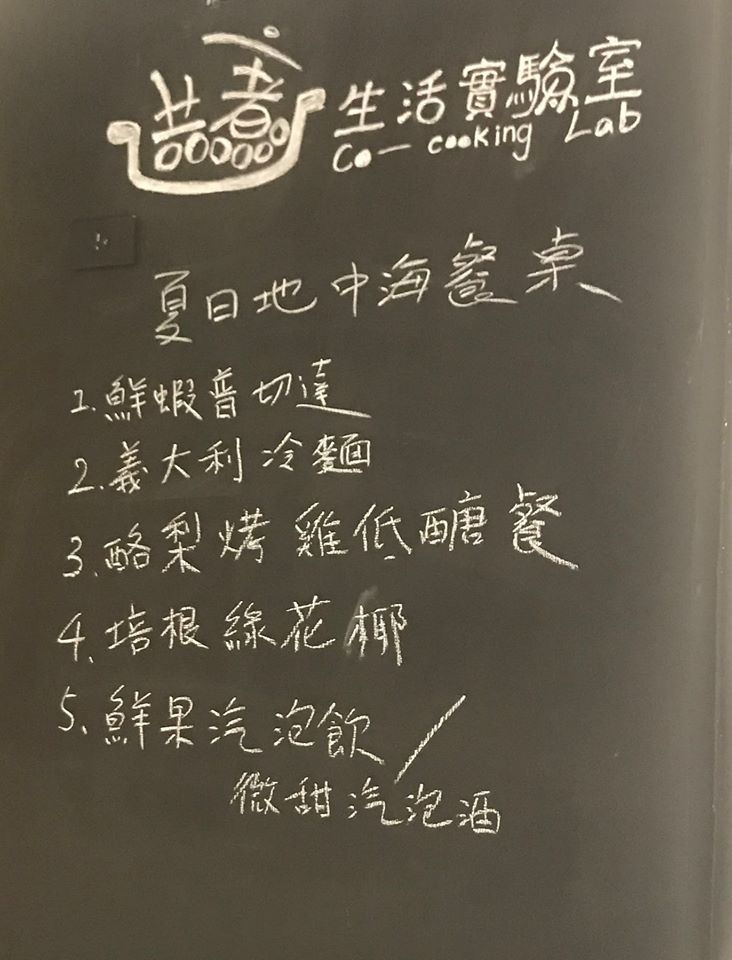 共煮 生活實驗室
Co-cooking Lab
夏日地中海餐桌
1.鮮蝦普切達
2.義大利冷麵
3.酪梨烤雞低醣餐
4.培根綠花椰
5.鮮果汽泡飲/
微甜汽泡酒